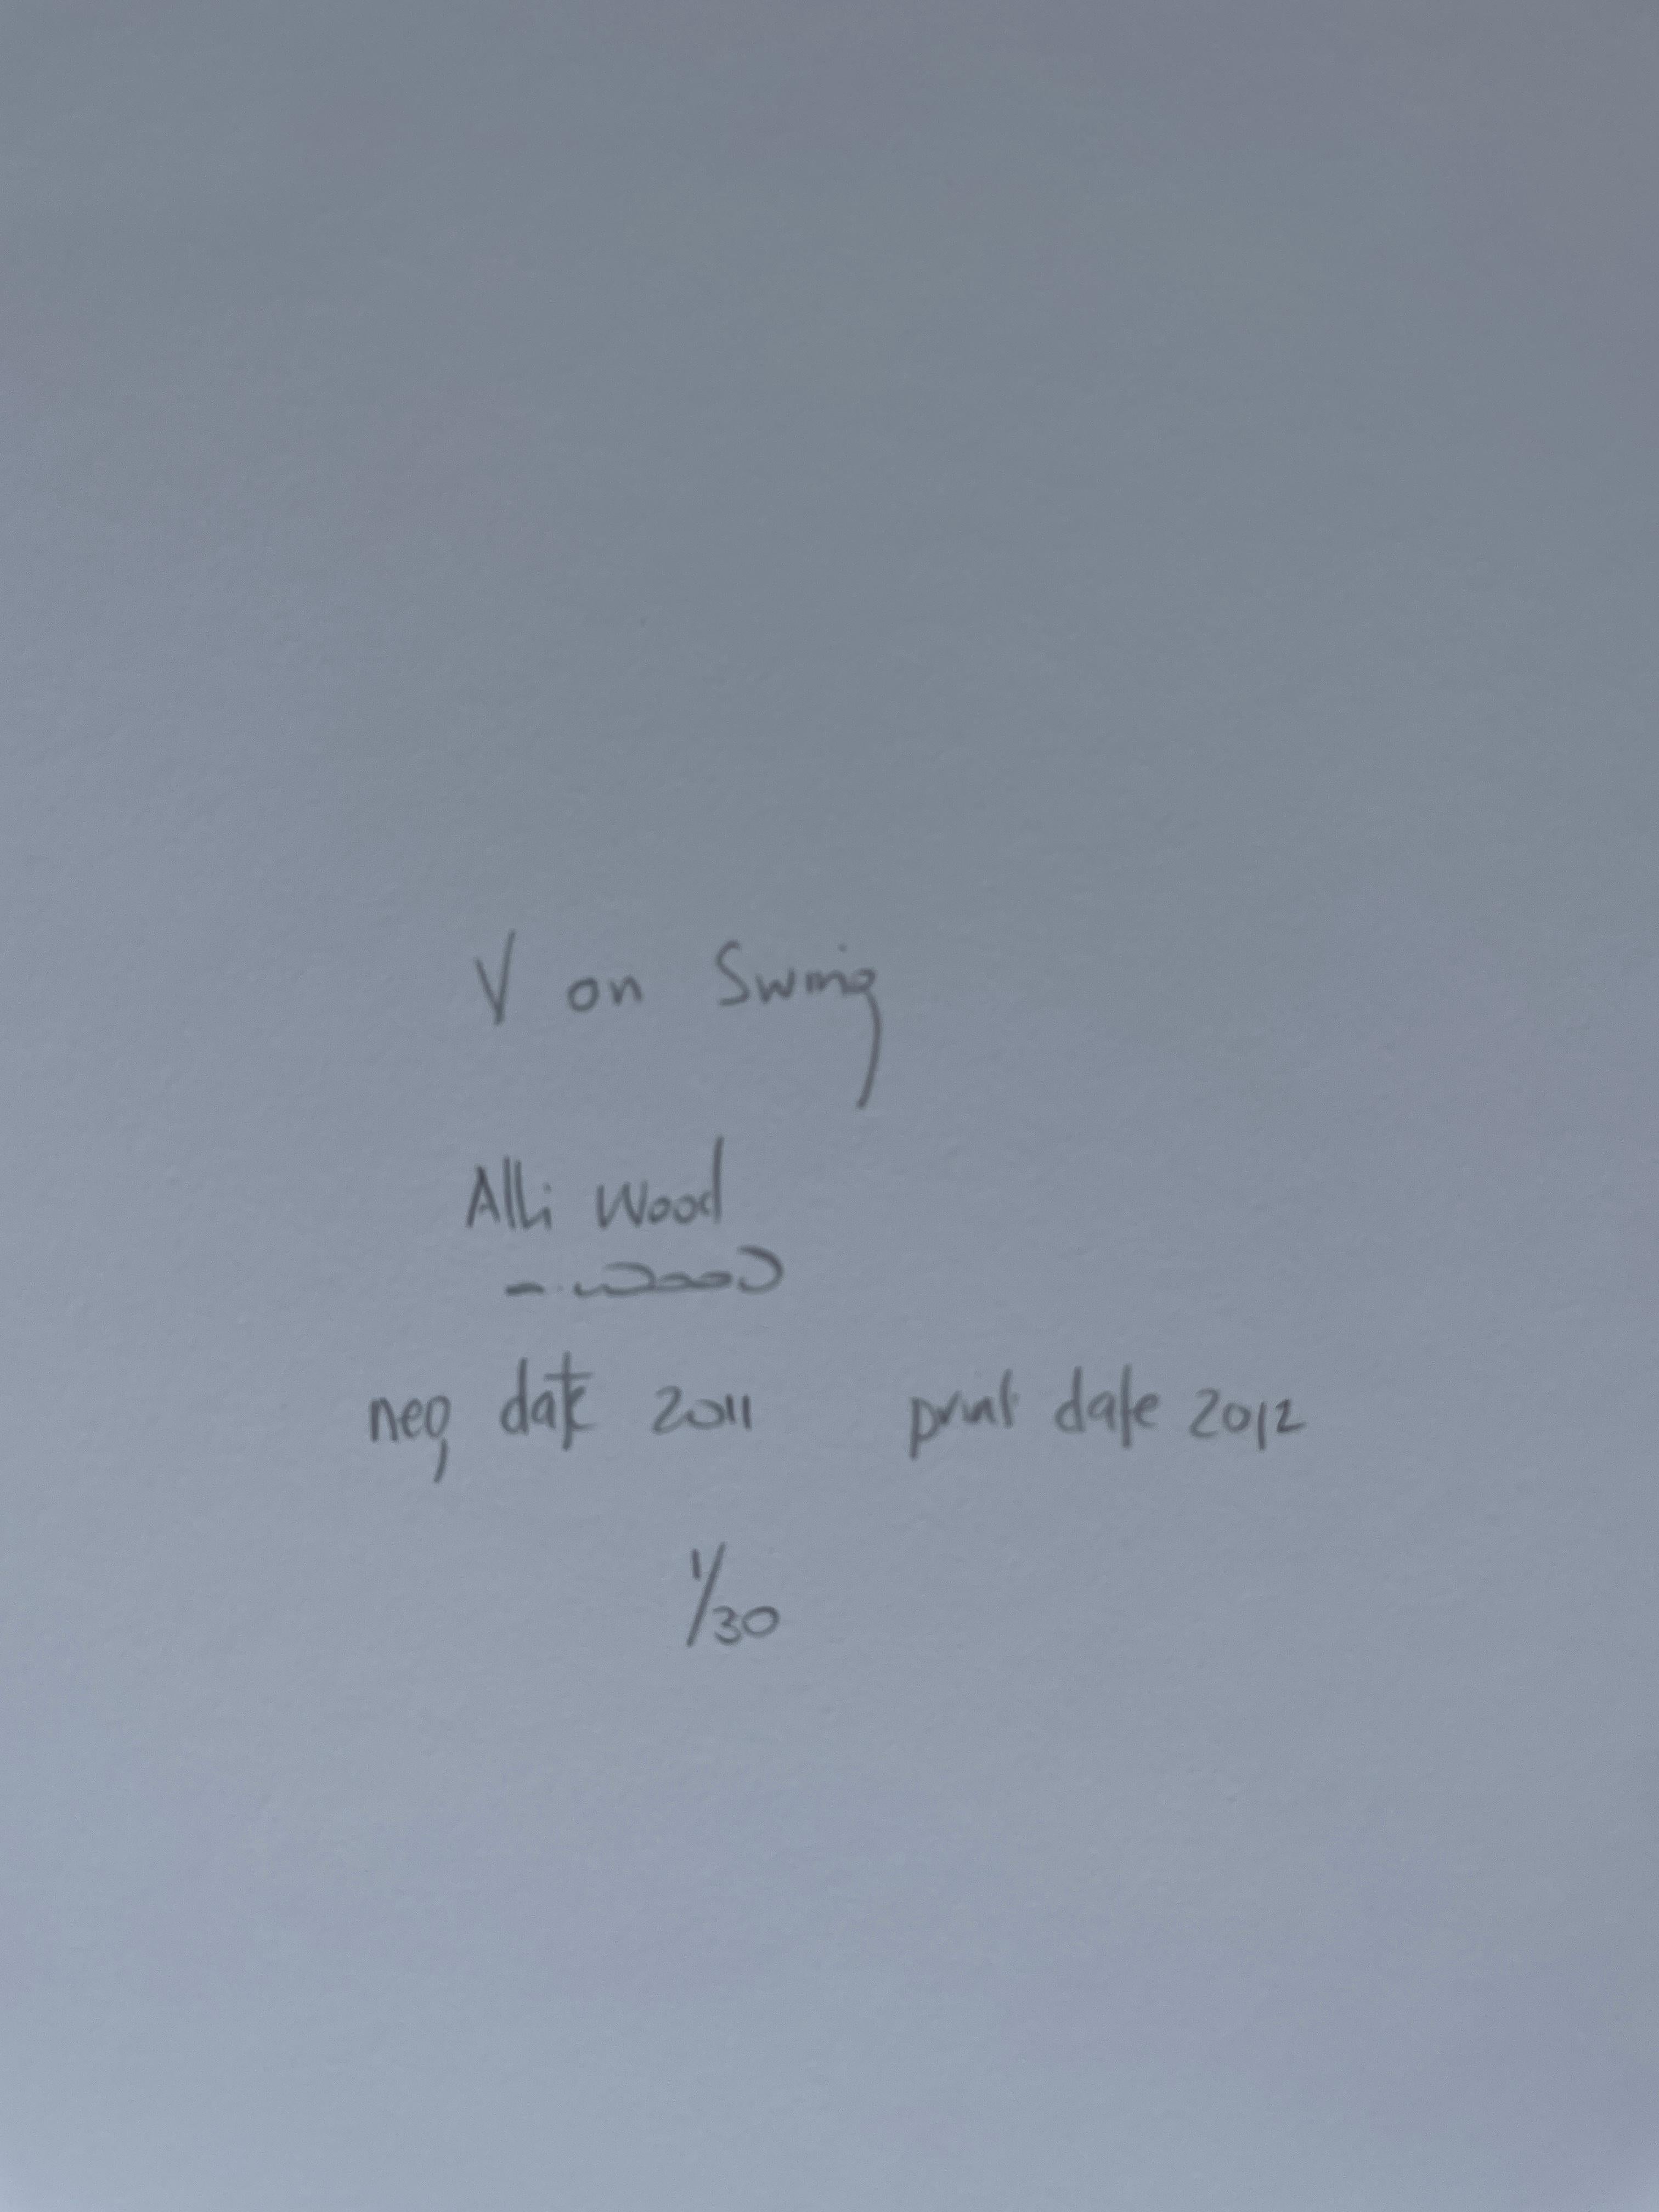 V on Swing
Alli Wood
neg date 2011 print date 2012
1/30